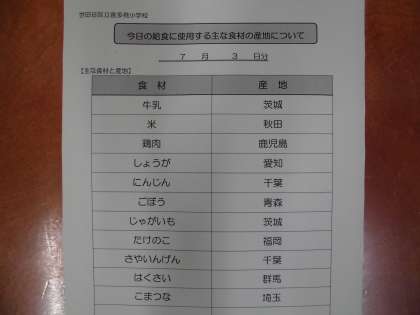 世田谷区立喜多見小学校
今日の給食に使用する主な食材の産地について
7 月 3 日分
【主な食材と産地】
食 材 産 地
牛乳 茨城
米 秋田
鶏肉 鹿児島
しょうが 愛知
にんじん 千葉
ごぼう 青森
じゃがいも 茨城
たけのこ 福岡
さやいんげん 千葉
はくさい 群馬
こまつな 埼玉